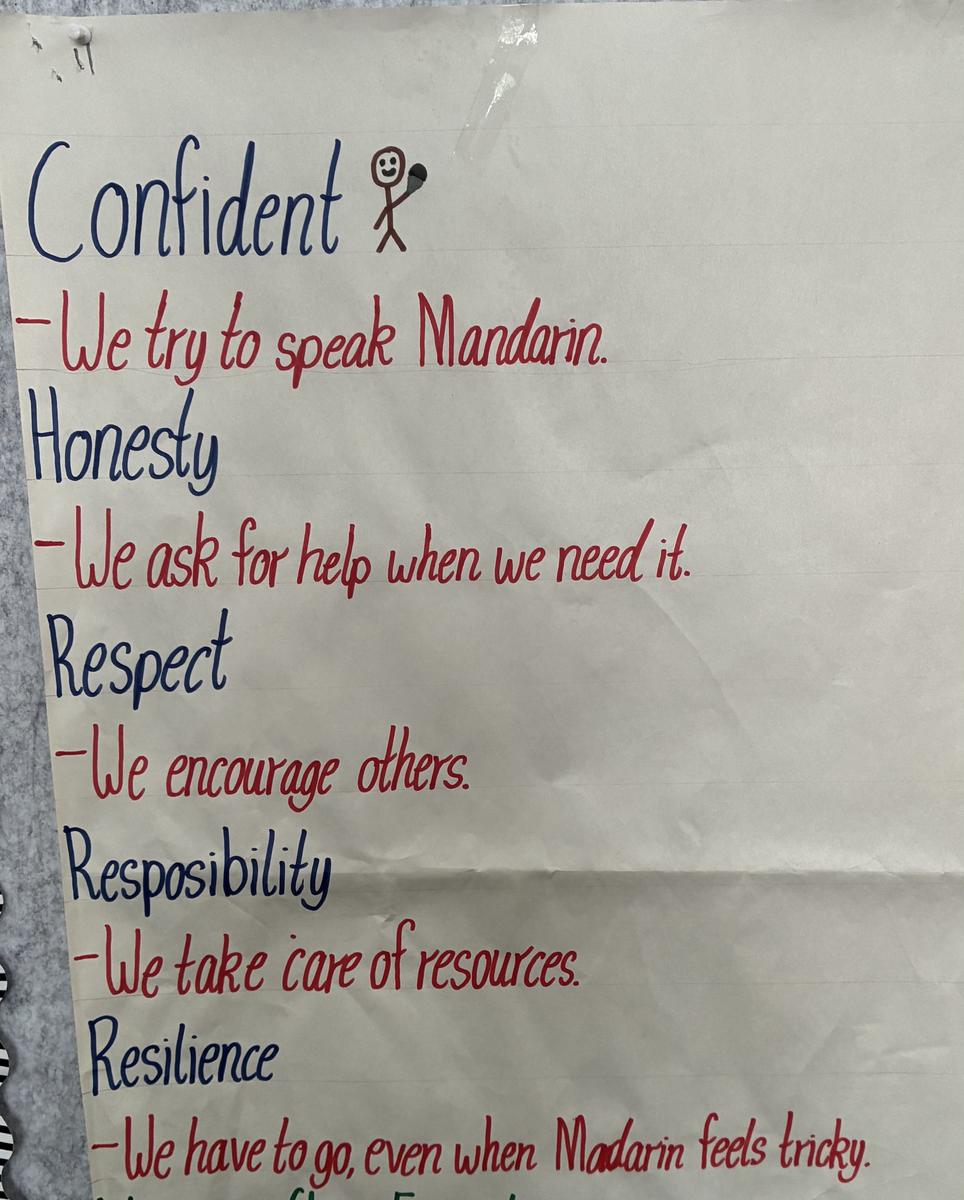 Confident
-We try to speak Mandarin.
Honesty
-We ask for help when we need it.
Respect
-We encourage others.
Resposibility
-We take care of resources.
Resilience
-We have to go, even when Madarin feels tricky.